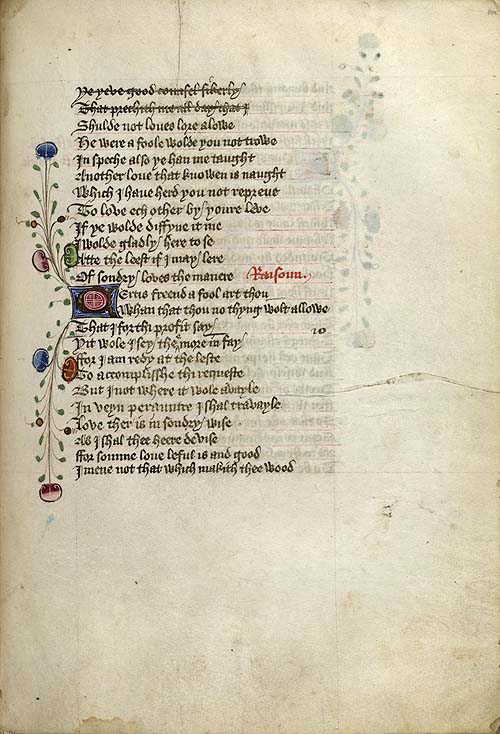 Ye yeve good counsel sikerly
That prechith me all day that I
Shulde not loves lore alowe
He were a foole wolde you not trowe
In speche also ye han me taught
Another love that knowen is naught
Which I have herd you not repreve
To love ech other by youre leve
If ye wolde diffyne it me
I wolde gladly here to se
Atte the leest if I may lere
Of sondry loves the manere Raisoun.
Certis freend a fool art thou
Whan that thou no thyng wolt allowe
That I for thi profit say
Yit wole I sey thee more in fay
ffor I am redy at the leste
To accomplisshe thi requeste
But I not where it wole avayle
In veyn peraunter I shal travayle
Love ther is in sondry wise
As I shal thee heere devise
ffor somme love leful is and good
I mene not that which makith thee wood